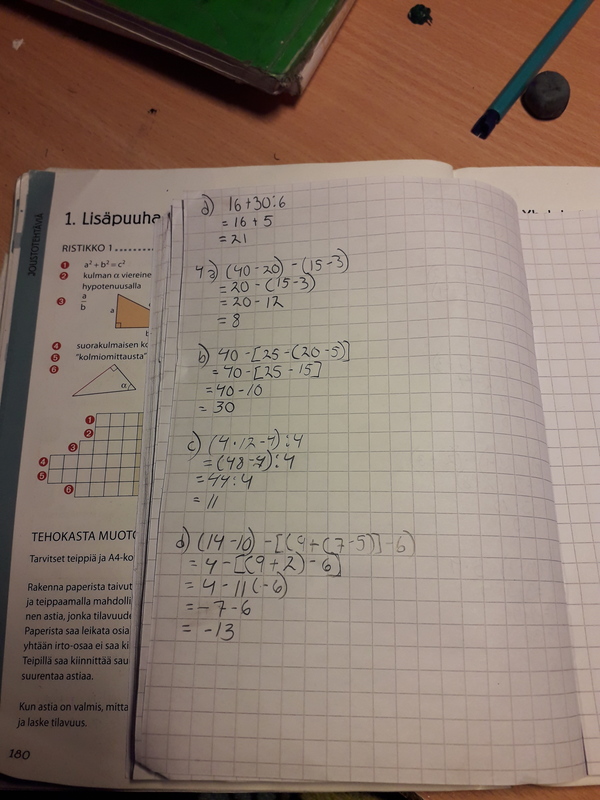 JOUSTOTEHTÄVIÄ
1. Lisäpuuha
RISTIKKO 1
1 a² + b² = c²
2 kulman α viereine
hypotenuusalla
3 a
b
a
b
4 suorakulmaisen ko
5 "kolmiomittausta"
6
α
1
2
3
4
5
6
TEHOKASTA MUOTO
Tarvitset teippiä ja A4-ko
Rakenna paperista taivut
ja teippaamalla mahdolli
nen astia, jonka tilavuude
Paperista saa leikata osia
yhtään irto-osaa ei saa ki
Teipillä saa kiinnittää sau
suurentaa astiaa.
Kun astia on valmis, mitta
ja laske tilavuus.
180
d) 16+30:6
= 16 + 5
= 21
4 a) (40-20) - (15-3)
= 20 - (15-3)
= 20 - 12
= 8
b) 40 - [25 - (20-5)]
= 40 - [25 - 15]
= 40 - 10
= 30
c) (4·12-4):4
= (48-4):4
= 44:4
= 11
d) (14-10) - [(9+(7-5)] - 6)
= 4 - [(9+2) - 6]
= 4 - 11(-6)
= -7 - 6
= -13